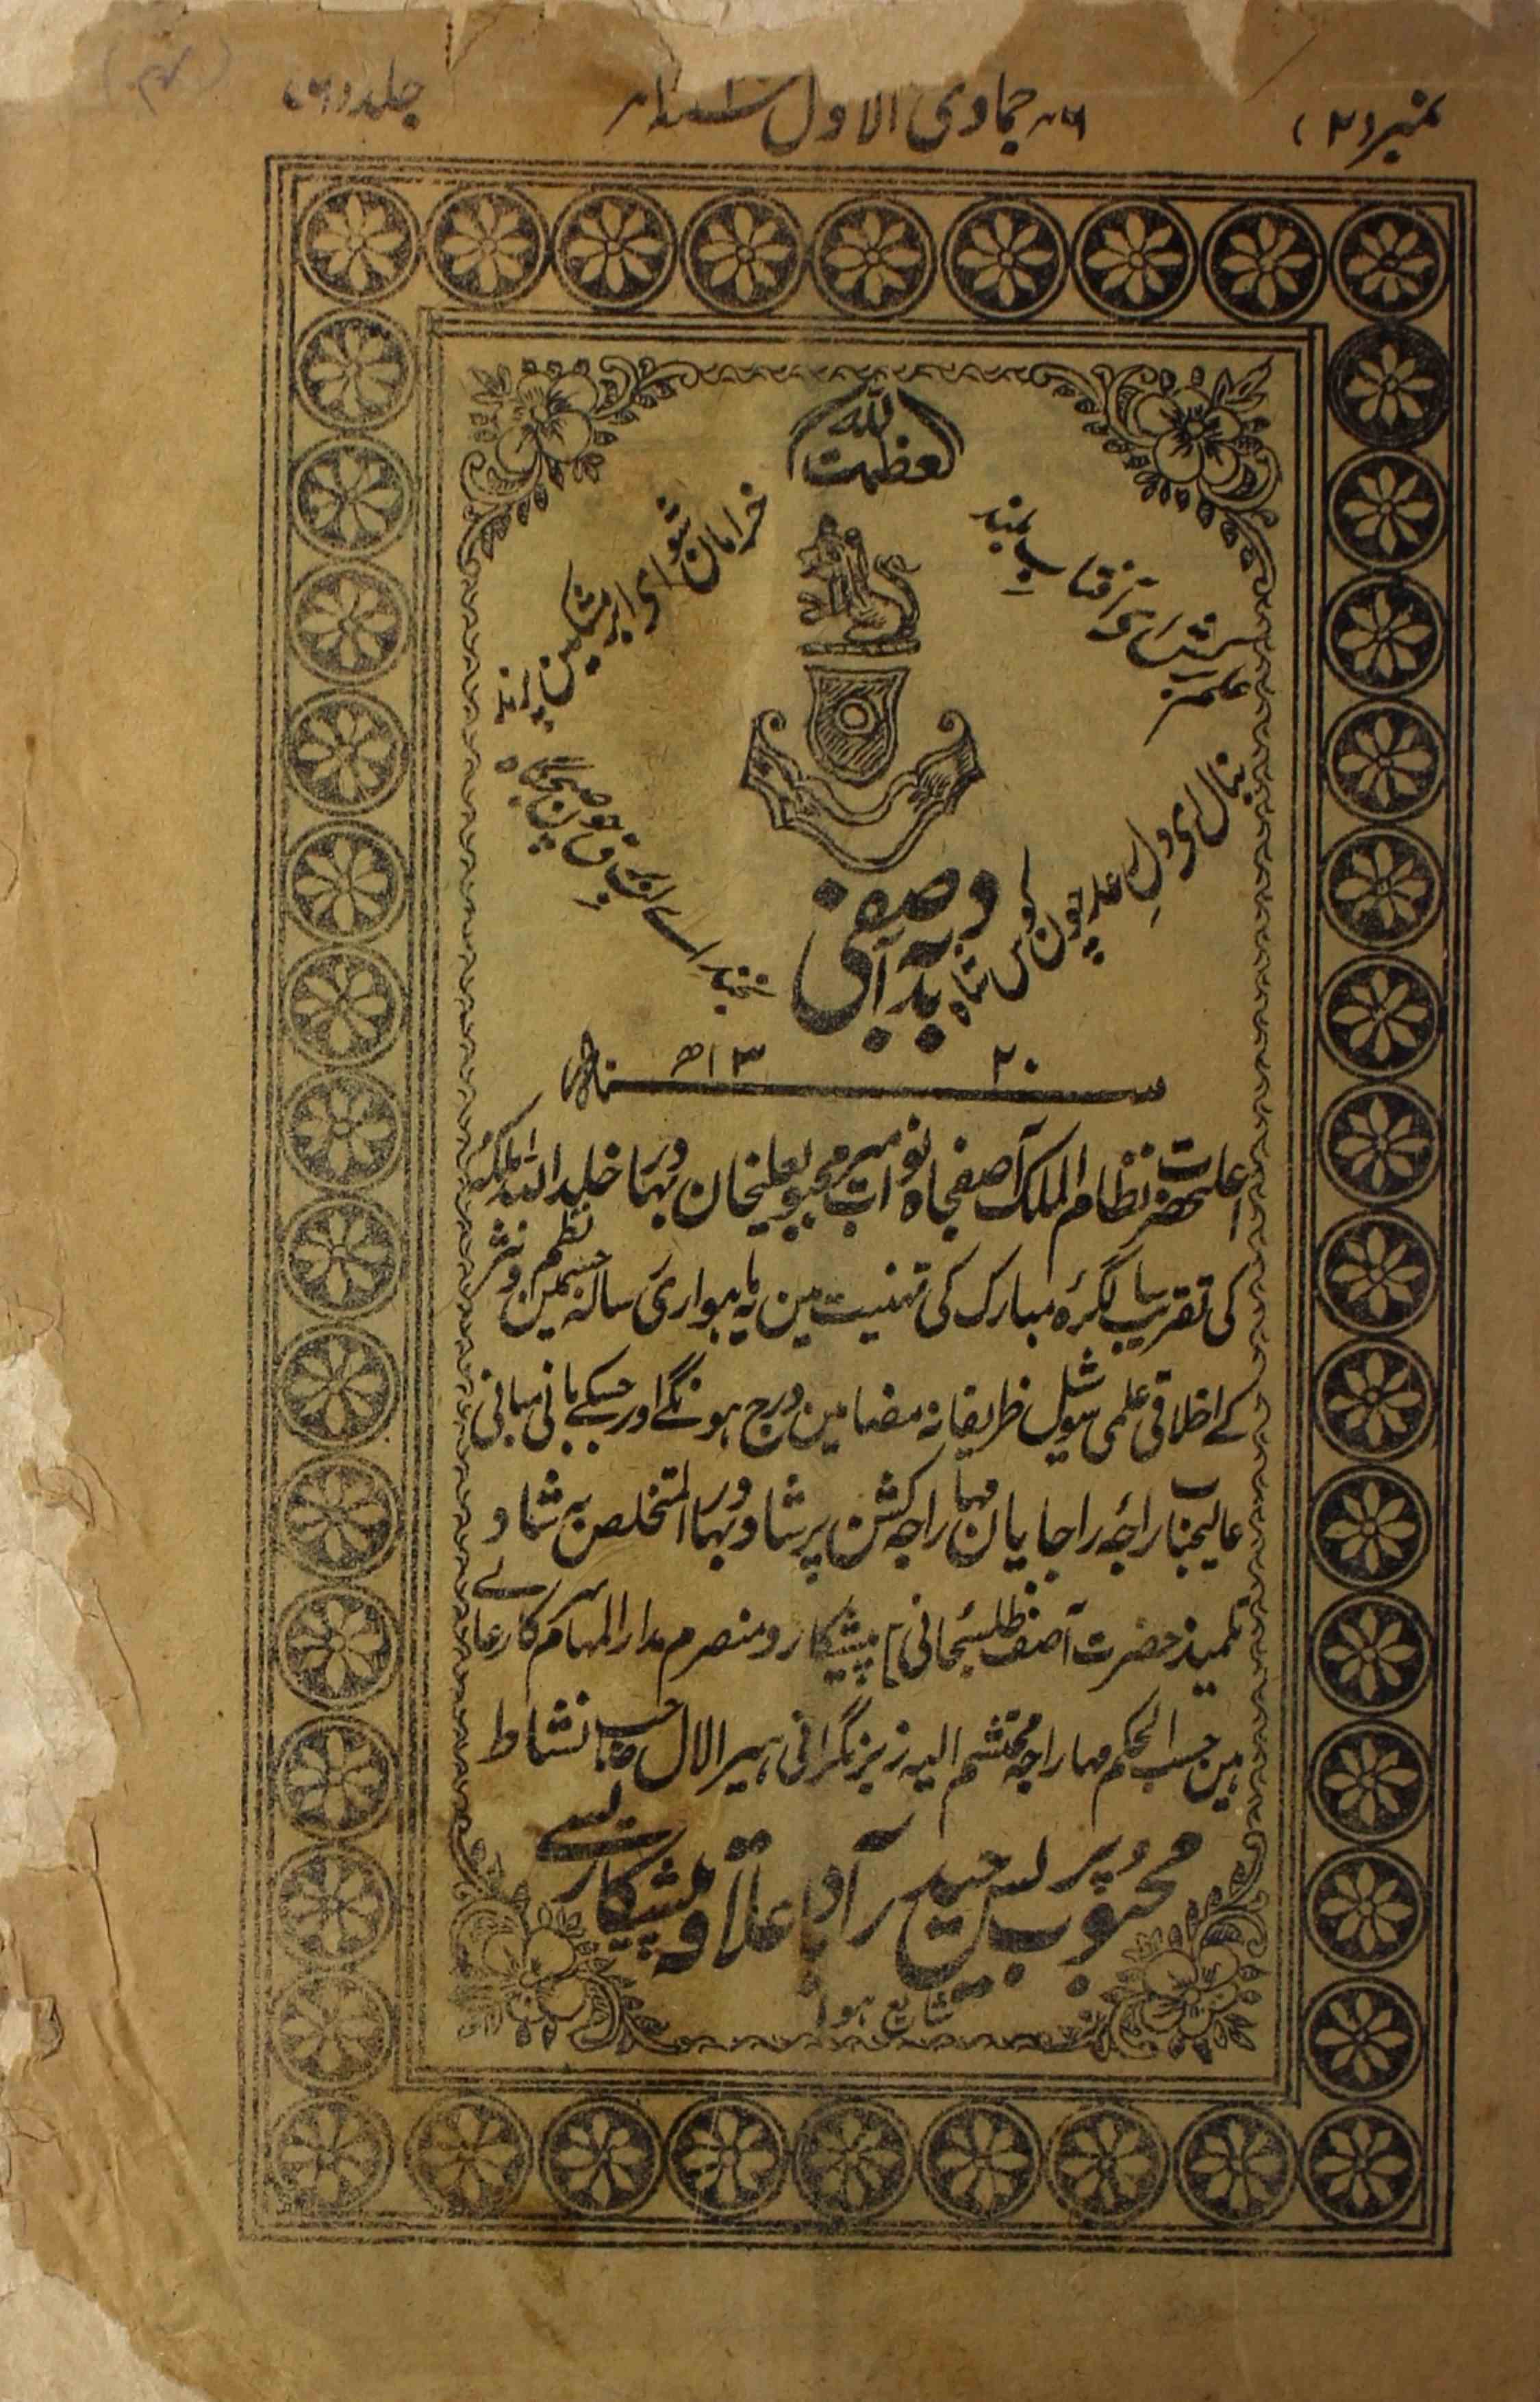 نمبر (۲)
۲۶ جمادی الاول
جلد (۶)
عظمت للہ
علم برکش ای آفتاب بلند
خرامان شو ای ابر مشکین پرند
بنال ای دل رعد چون کوس شاہ
بخند اے لب برق چون صبحگاہ
دبدبہ آصفی
۱۳۲۰ھ
اعلیحضرت نظام الملک آصفجاہ نواب میر محبوبعلیخان بہادر خلد اللہ ملکہ
کی تقریب سالگرہ مبارک کی تہنیت مین یہ ماہواری رسالہ جسمین نظم و نثر
کے اخلاقی علمی سوشیل ظریفانہ مضامین درج ہونگے اور جسکے بانی مبانی
عالیجناب راجۂ راجایان مہاراجہ کشن پرشاد بہادر المتخلص بہ شاد
تلمیذ حضرت آصف ظل سبحانی پیشکار و منصرم مدار المہام سرکار عالے
ہین حسب الحکم مہاراجہ محتشم الیہ زیر نگرانی ہیرا لال صاحب نشاط
محبوب پریس حیدرآباد علاقہ پیشکاری سے
شایع ہوا